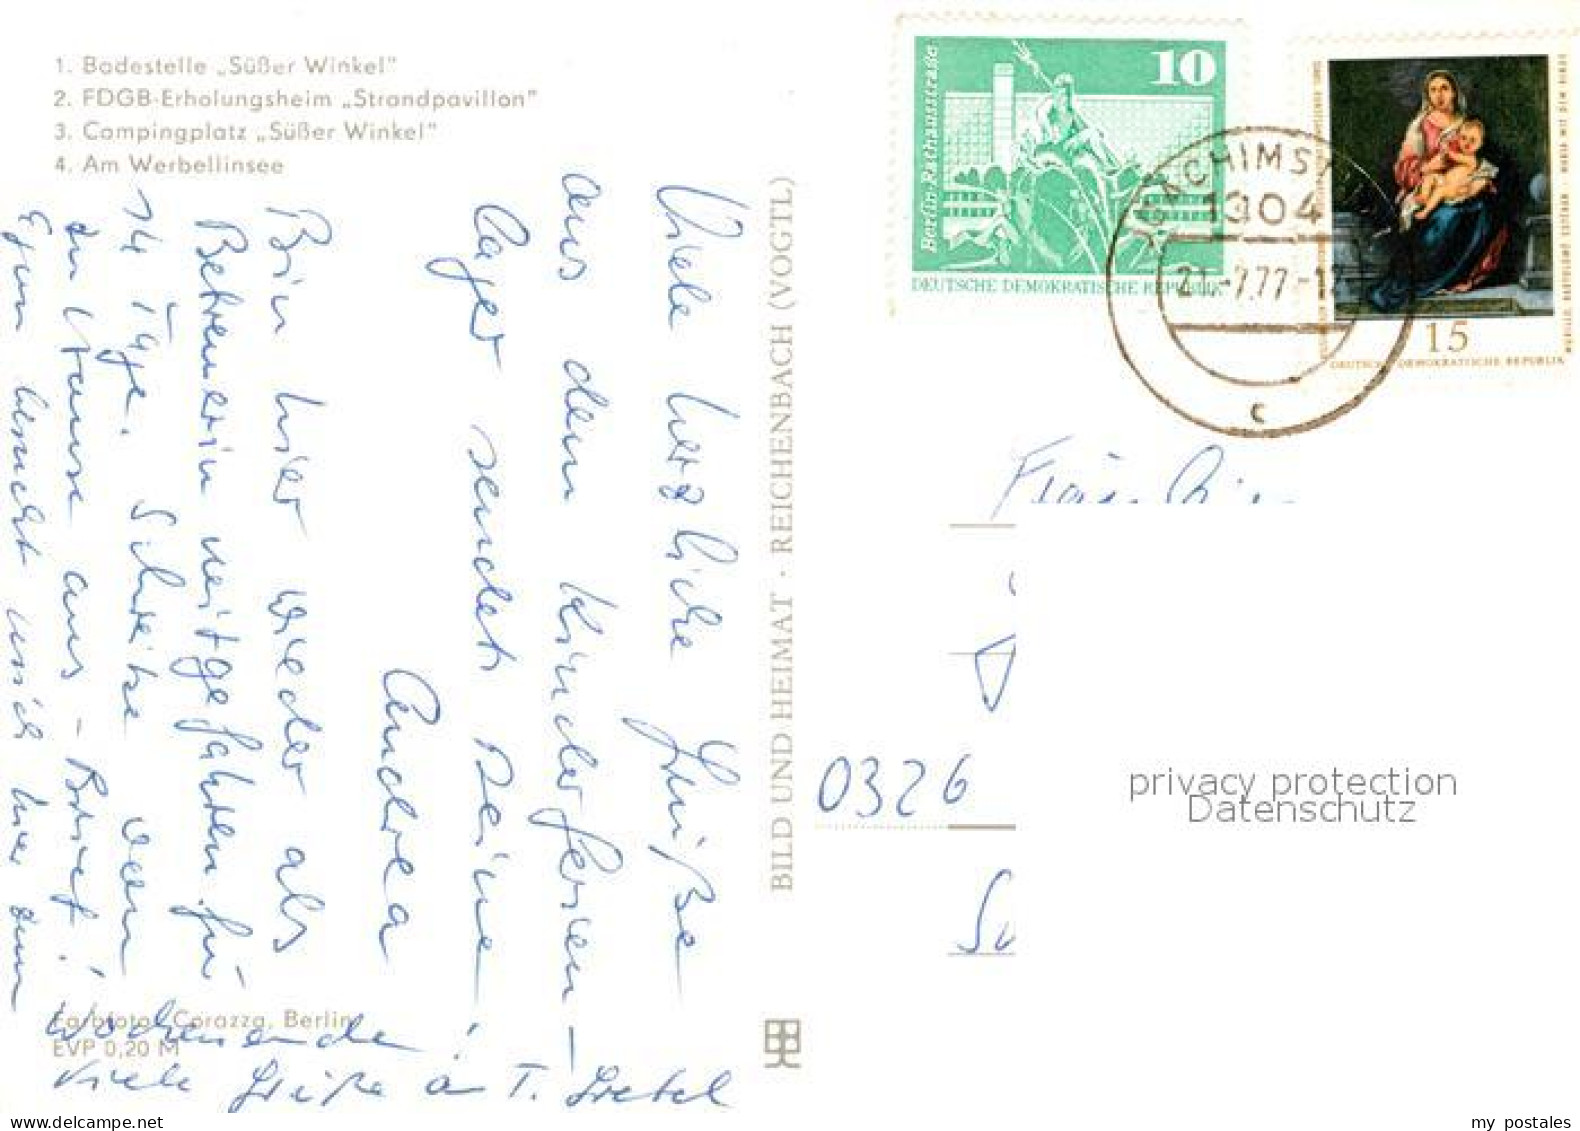 1. Badestelle „Süßer Winkel"
2. FDGB-Erholungsheim „Strandpavillon"
3. Campingplatz „Süßer Winkel"
4. Am Werbellinsee
Viele herzliche Grüße
aus dem Kinderferien-
lager sendet Deine
Andrea
Bin hier wieder als
Betreuerin mitgefahren für
14 Tage. Schreibe dann
zu Hause aus - Brief!
Egon besucht mich hier zum
Wochenende!
Viele Grüße an T. Gretel
Farbfoto: Corazza, Berlin
EVP 0,20 M
BILD UND HEIMAT · REICHENBACH (VOGTL)
10
Berlin-Rathausstraße
DEUTSCHE DEMOKRATISCHE REPUBLIK
15
DEUTSCHE DEMOKRATISCHE REPUBLIK
MARIA MIT DEM KINDE
JOACHIMST
1304
21.-7.77-12
c
0326
privacy protection
Datenschutz
my postales